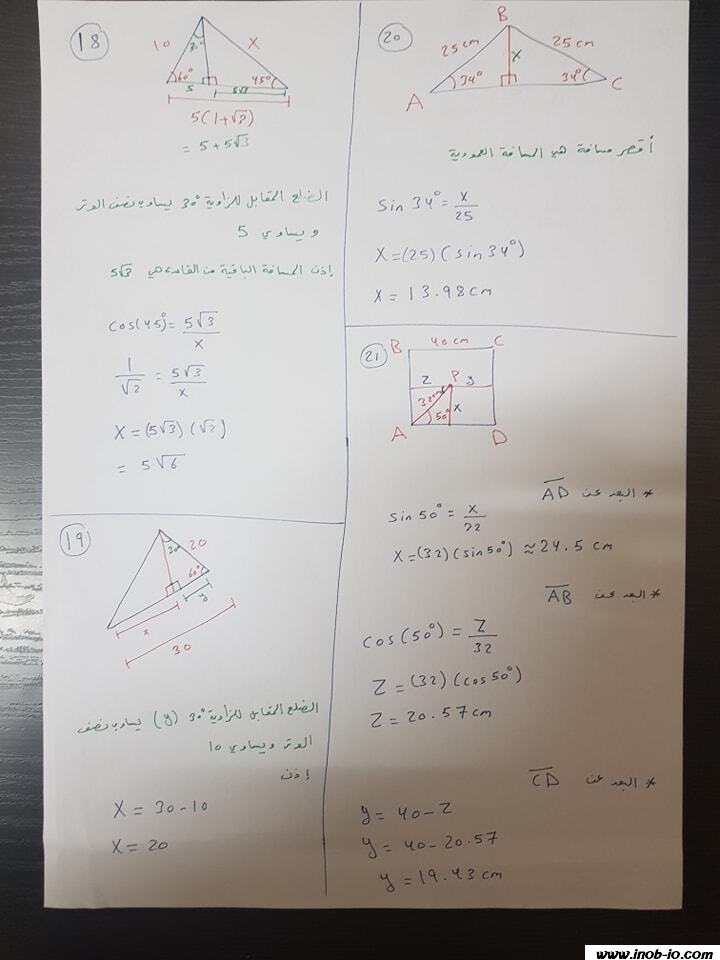 18
10
30°
x
60°
45°
5
5√3
5(1+√3)
= 5+5√3
الضلع المقابل للزاوية 30° يساوي نصف الوتر
ويساوي 5
إذن المسافة الباقية من القاعدة هي 5√3
cos(45°) = 5√3/x
1/√2 = 5√3/x
x = (5√3)(√2)
= 5√6
19
30°
20
60°
y
x
30
الضلع المقابل للزاوية 30° (y) يساوي نصف
الوتر ويساوي 10
إذن
x = 30-10
x = 20
20
B
25cm
x
25 cm
34°
34°
A
C
أقصر مسافة هي المسافة العمودية
sin 34° = x/25
x = (25)(sin 34°)
x = 13.98 cm
21
B
40 cm
C
z
P
y
32cm
50°
x
A
D
* البعد عن AD
sin 50° = x/32
x = (32)(sin 50°) ≈ 24.5 cm
* البعد عن AB
cos(50°) = z/32
z = (32)(cos 50°)
z = 20.57 cm
* البعد عن CD
y = 40 - z
y = 40 - 20.57
y = 19.43 cm
www.inob-jo.com